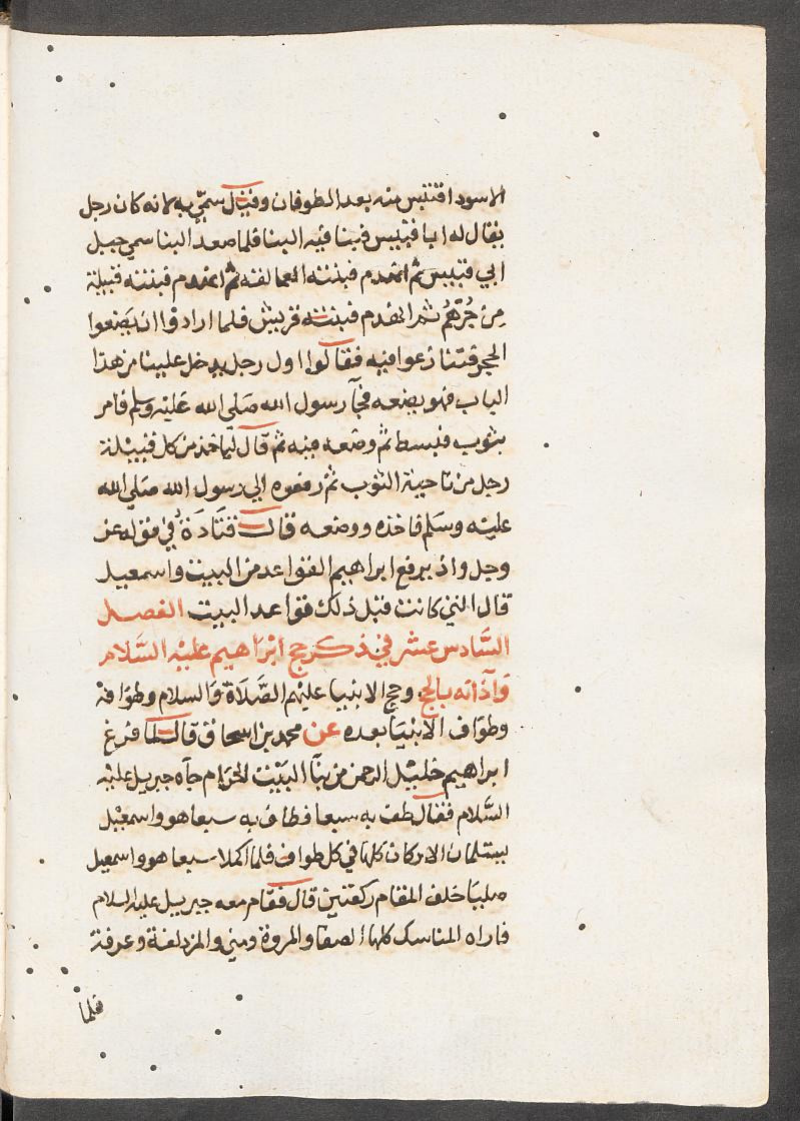 الاسود اقتبس منه بعد الطوفان وقيل سمي به لانه كان رجل
يقال له ابا قبيس فبنا فيه البنا فلما صعد البنا سمي جبل
ابي قبيس ثم انهدم فبنته العمالقه ثم انهدم فبنته قبيلة
مِن جُرْهُمُ ثم انهدم فبنته قريش فلما ارادوا ان يَضعوا
الحجر فتنازعوا فيه فقالوا اول رجل يدخل علينا من هذا
الباب فهو يضعه فجآ رسول الله صَلى الله عَليْه وسلم فامر
بثوب فبسط ثم وضعه فيه ثم قال ليَاخذ من كل قبيلة
رجل من ناحية الثوب ثم رفعوه الي رسول الله صَلي الله
عليْه وسَلم فاخذه ووضعه قال قتَادَةُ في قوله عز
وجل واذ يرفع ابراهيم القواعد من البيت واسمعيل
قال التي كانت قبل ذلك قواعد البيت الفصل
السَّادس عشر في ذكر حج ابْرَاهيم عليْه السَّلام
وَآذانه بالحج وحج الانبيا عليْهم الصَّلاة وَالسلام وطوَافه
وطوَاف الانبيَا بعده عن محمد بن اسحاق قال لما فرغ
ابراهيم خليل الرحمن من بنآ البَيْت الحرَام جآه جبريل عليْه
السَّلام فقال طف به سبعا فطاف به سبعا هو واسمعيل
يستلمان الاركان كلها في كل طواف فلما اكملا سبعا هو واسمعيل
صليَا خلف المقام ركعتين قال فقام معه جبريل عليه السلام
فاراه المناسك كلها الصفا والمروة ومني والمزدلفة وعرفة
فلما